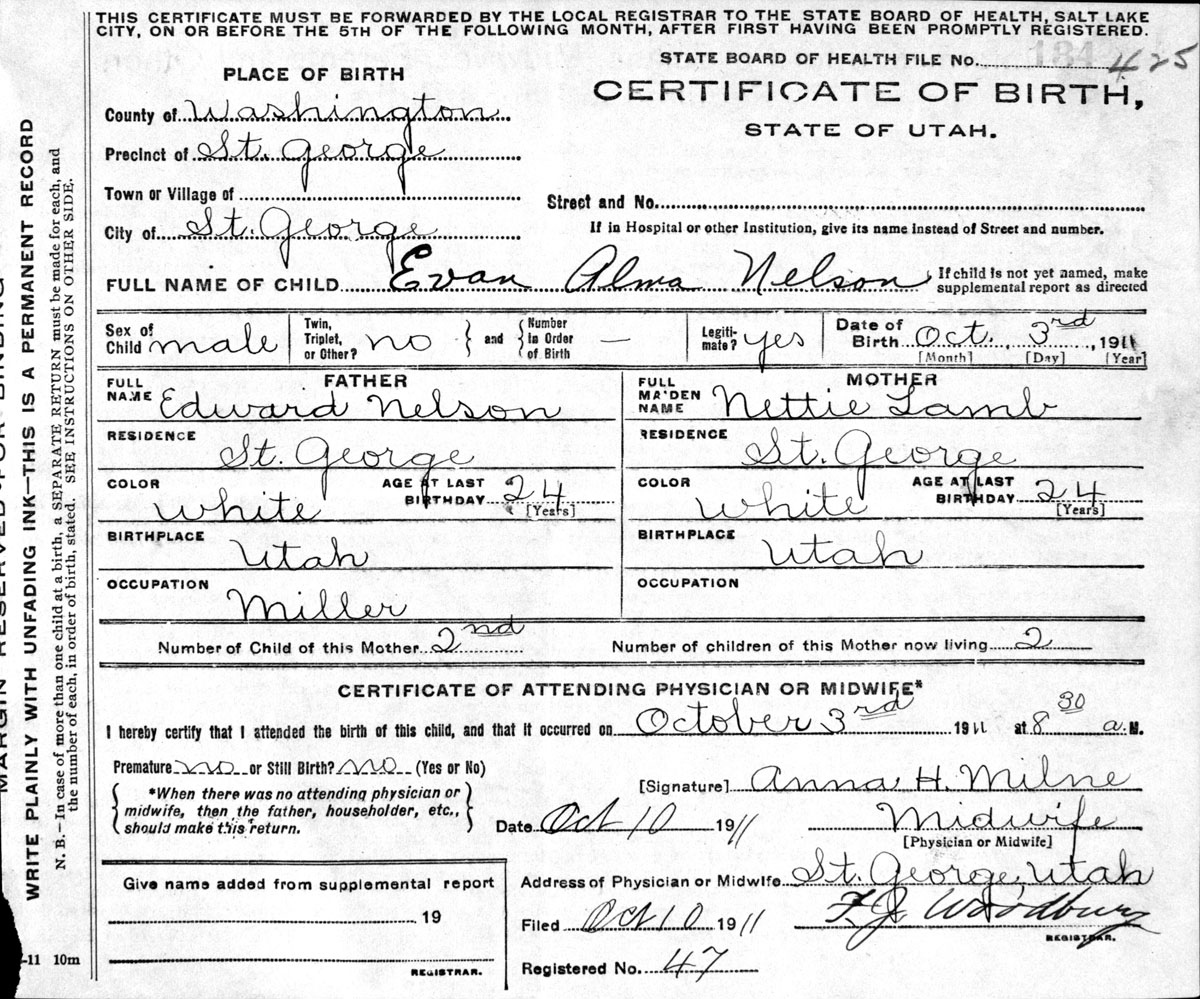 THIS CERTIFICATE MUST BE FORWARDED BY THE LOCAL REGISTRAR TO THE STATE BOARD OF HEALTH, SALT LAKE
CITY, ON OR BEFORE THE 5TH OF THE FOLLOWING MONTH, AFTER FIRST HAVING BEEN PROMPTLY REGISTERED.
STATE BOARD OF HEALTH FILE No. 184 425
PLACE OF BIRTH
CERTIFICATE OF BIRTH,
STATE OF UTAH.
County of Washington
Precinct of St. George
Town or Village of
Street and No.
City of St. George
If in Hospital or other Institution, give its name instead of Street and number.
FULL NAME OF CHILD Evan Alma Nelson
If child is not yet named, make
supplemental report as directed
Sex of Child male
Twin, Triplet, or Other? no
and
Number in Order of Birth —
Legiti-mate? yes
Date of Birth Oct. 3rd, 1911
[Month] [Day] [Year]
FATHER
FULL NAME Edward Nelson
RESIDENCE St. George
COLOR White
AGE AT LAST BIRTHDAY 24
[Years]
BIRTHPLACE Utah
OCCUPATION Miller
MOTHER
FULL MAIDEN NAME Nettie Lamb
RESIDENCE St. George
COLOR White
AGE AT LAST BIRTHDAY 24
[Years]
BIRTHPLACE Utah
OCCUPATION
Number of Child of this Mother 2nd
Number of children of this Mother now living 2
CERTIFICATE OF ATTENDING PHYSICIAN OR MIDWIFE*
I hereby certify that I attended the birth of this child, and that it occurred on October 3rd 1911 at 8 30 a. M.
Premature no or Still Birth? no (Yes or No)
*When there was no attending physician or
midwife, then the father, householder, etc.,
should make this return.
[Signature] Anna H. Milne
Date Oct 10 1911
Midwife
[Physician or Midwife]
Give name added from supplemental report
19
REGISTRAR.
Address of Physician or Midwife St. George, Utah
Filed Oct 10 1911
F. J. Woodbury
REGISTRAR.
Registered No. 47
-11 10m
MARGIN RESERVED FOR BINDING
WRITE PLAINLY WITH UNFADING INK—THIS IS A PERMANENT RECORD
N. B.—In case of more than one child at a birth, a SEPARATE RETURN must be made for each, and
the number of each, in order of birth, stated. SEE INSTRUCTIONS ON OTHER SIDE.